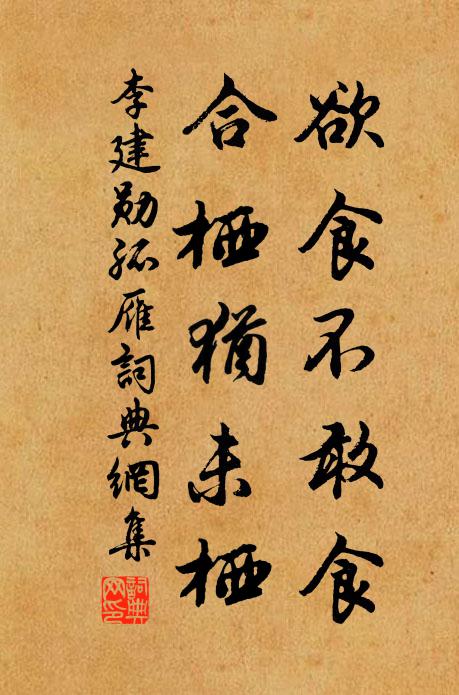 欲食不敢食
合栖犹未栖
李建勋孤雁詞典網集
詞典網印